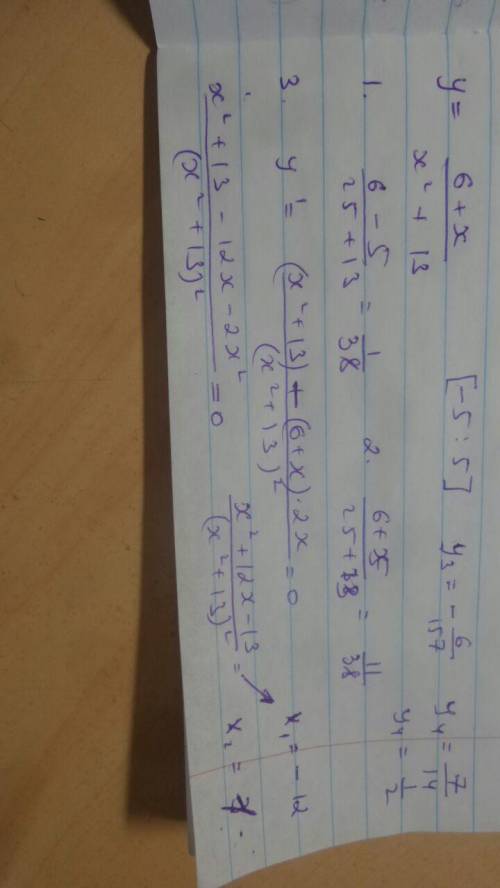 y = (6+x)/(x² + 13) [-5:5] y₃ = -6/157 y₄ = 7/14
y₄ = 1/2
1. (6 - 5)/(25 + 13) = 1/38 2. (6+5)/(25+38) = 11/38
3. y' = ((x²+13) - (6+x)·2x)/(x²+13)² = 0 x₁ = -12
(x² + 13 - 12x - 2x²)/(x² + 13)² = 0 (x² + 12x - 13)/(x² + 13)² = x₂ = 1.